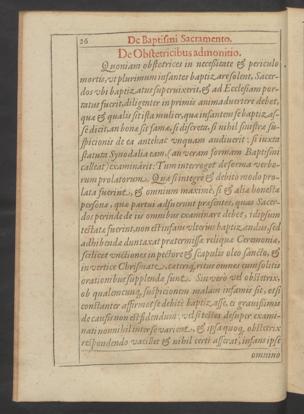 26 De Baptismi Sacramento.
De Obstetricibus admonitio.
Quoniam obstetrices in necessitate & periculo
mortis, vt plurimum infantes baptizare solent, Sacer-
dos vbi baptizatus superuixerit, & ad Ecclesiam por-
tatus fuerit, diligenter in primis animaduertere debet,
quæ & qualis sit ista mulier, quæ infantem se baptizas-
se dicit, an bonæ sit famæ, si discreta, si nihil sinistræ su-
spicionis de ea antehac vnquam audiuerit: si iuxta
statuta Synodalia eam (an veram formam Baptismi
calleat) examinârit. Tum interroget de forma verbo-
rum prolatorum. Quæ si integrè & debito modo pro-
lata fuerint, & omnium maximè, si & alia honesta
persona, quæ partui adfuerint præsentes, quas Sacer-
dos perinde de iis omnibus examinare debet, idipsum
testatæ fuerint, non est infans vlterius baptizandus, sed
adhibendæ duntaxat prætermissæ reliquæ Ceremoniæ,
scilicet vnctiones in pectore & scapulis oleo sancto, &
in vertice Chrismate, cæterique ritus omnes cum solitis
orationibus supplendæ sunt. Sin verò vel obstetrix,
ob qualemcunque suspicionem malam infamis sit, etsi
constanter affirmet se debitè baptizasse, ei grauissimis
de causis non est fidendum: vel si testes desuper exami-
nati nonnihil inter se varient, & ipsa quoque obstetrix
respondendo vacillet & nihil certi asserat, infans ipse
omnino